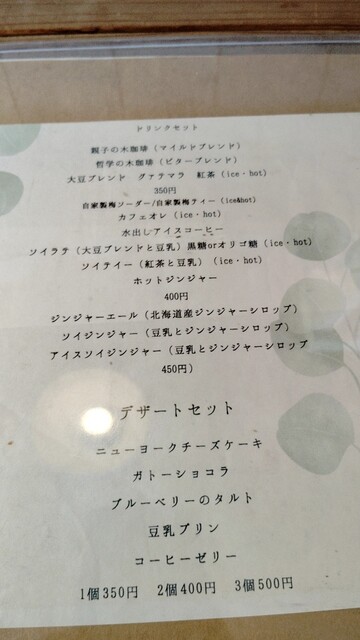 ドリンクセット
親子の木珈琲（マイルドブレンド）
哲学の木珈琲（ビターブレンド）
大豆ブレンド　グァテマラ　紅茶（ice・hot）
350円
自家製梅ソーダー/自家製梅ティー（ice&hot）
カフェオレ（ice・hot）
水出しアイスコーヒー
ソイラテ（大豆ブレンドと豆乳）黒糖orオリゴ糖（ice・hot）
ソイティー（紅茶と豆乳）（ice・hot）
ホットジンジャー
400円
ジンジャーエール（北海道産ジンジャーシロップ）
ソイジンジャー（豆乳とジンジャーシロップ）
アイスソイジンジャー（豆乳とジンジャーシロップ
450円）
デザートセット
ニューヨークチーズケーキ
ガトーショコラ
ブルーベリーのタルト
豆乳プリン
コーヒーゼリー
1個350円　2個400円　3個500円